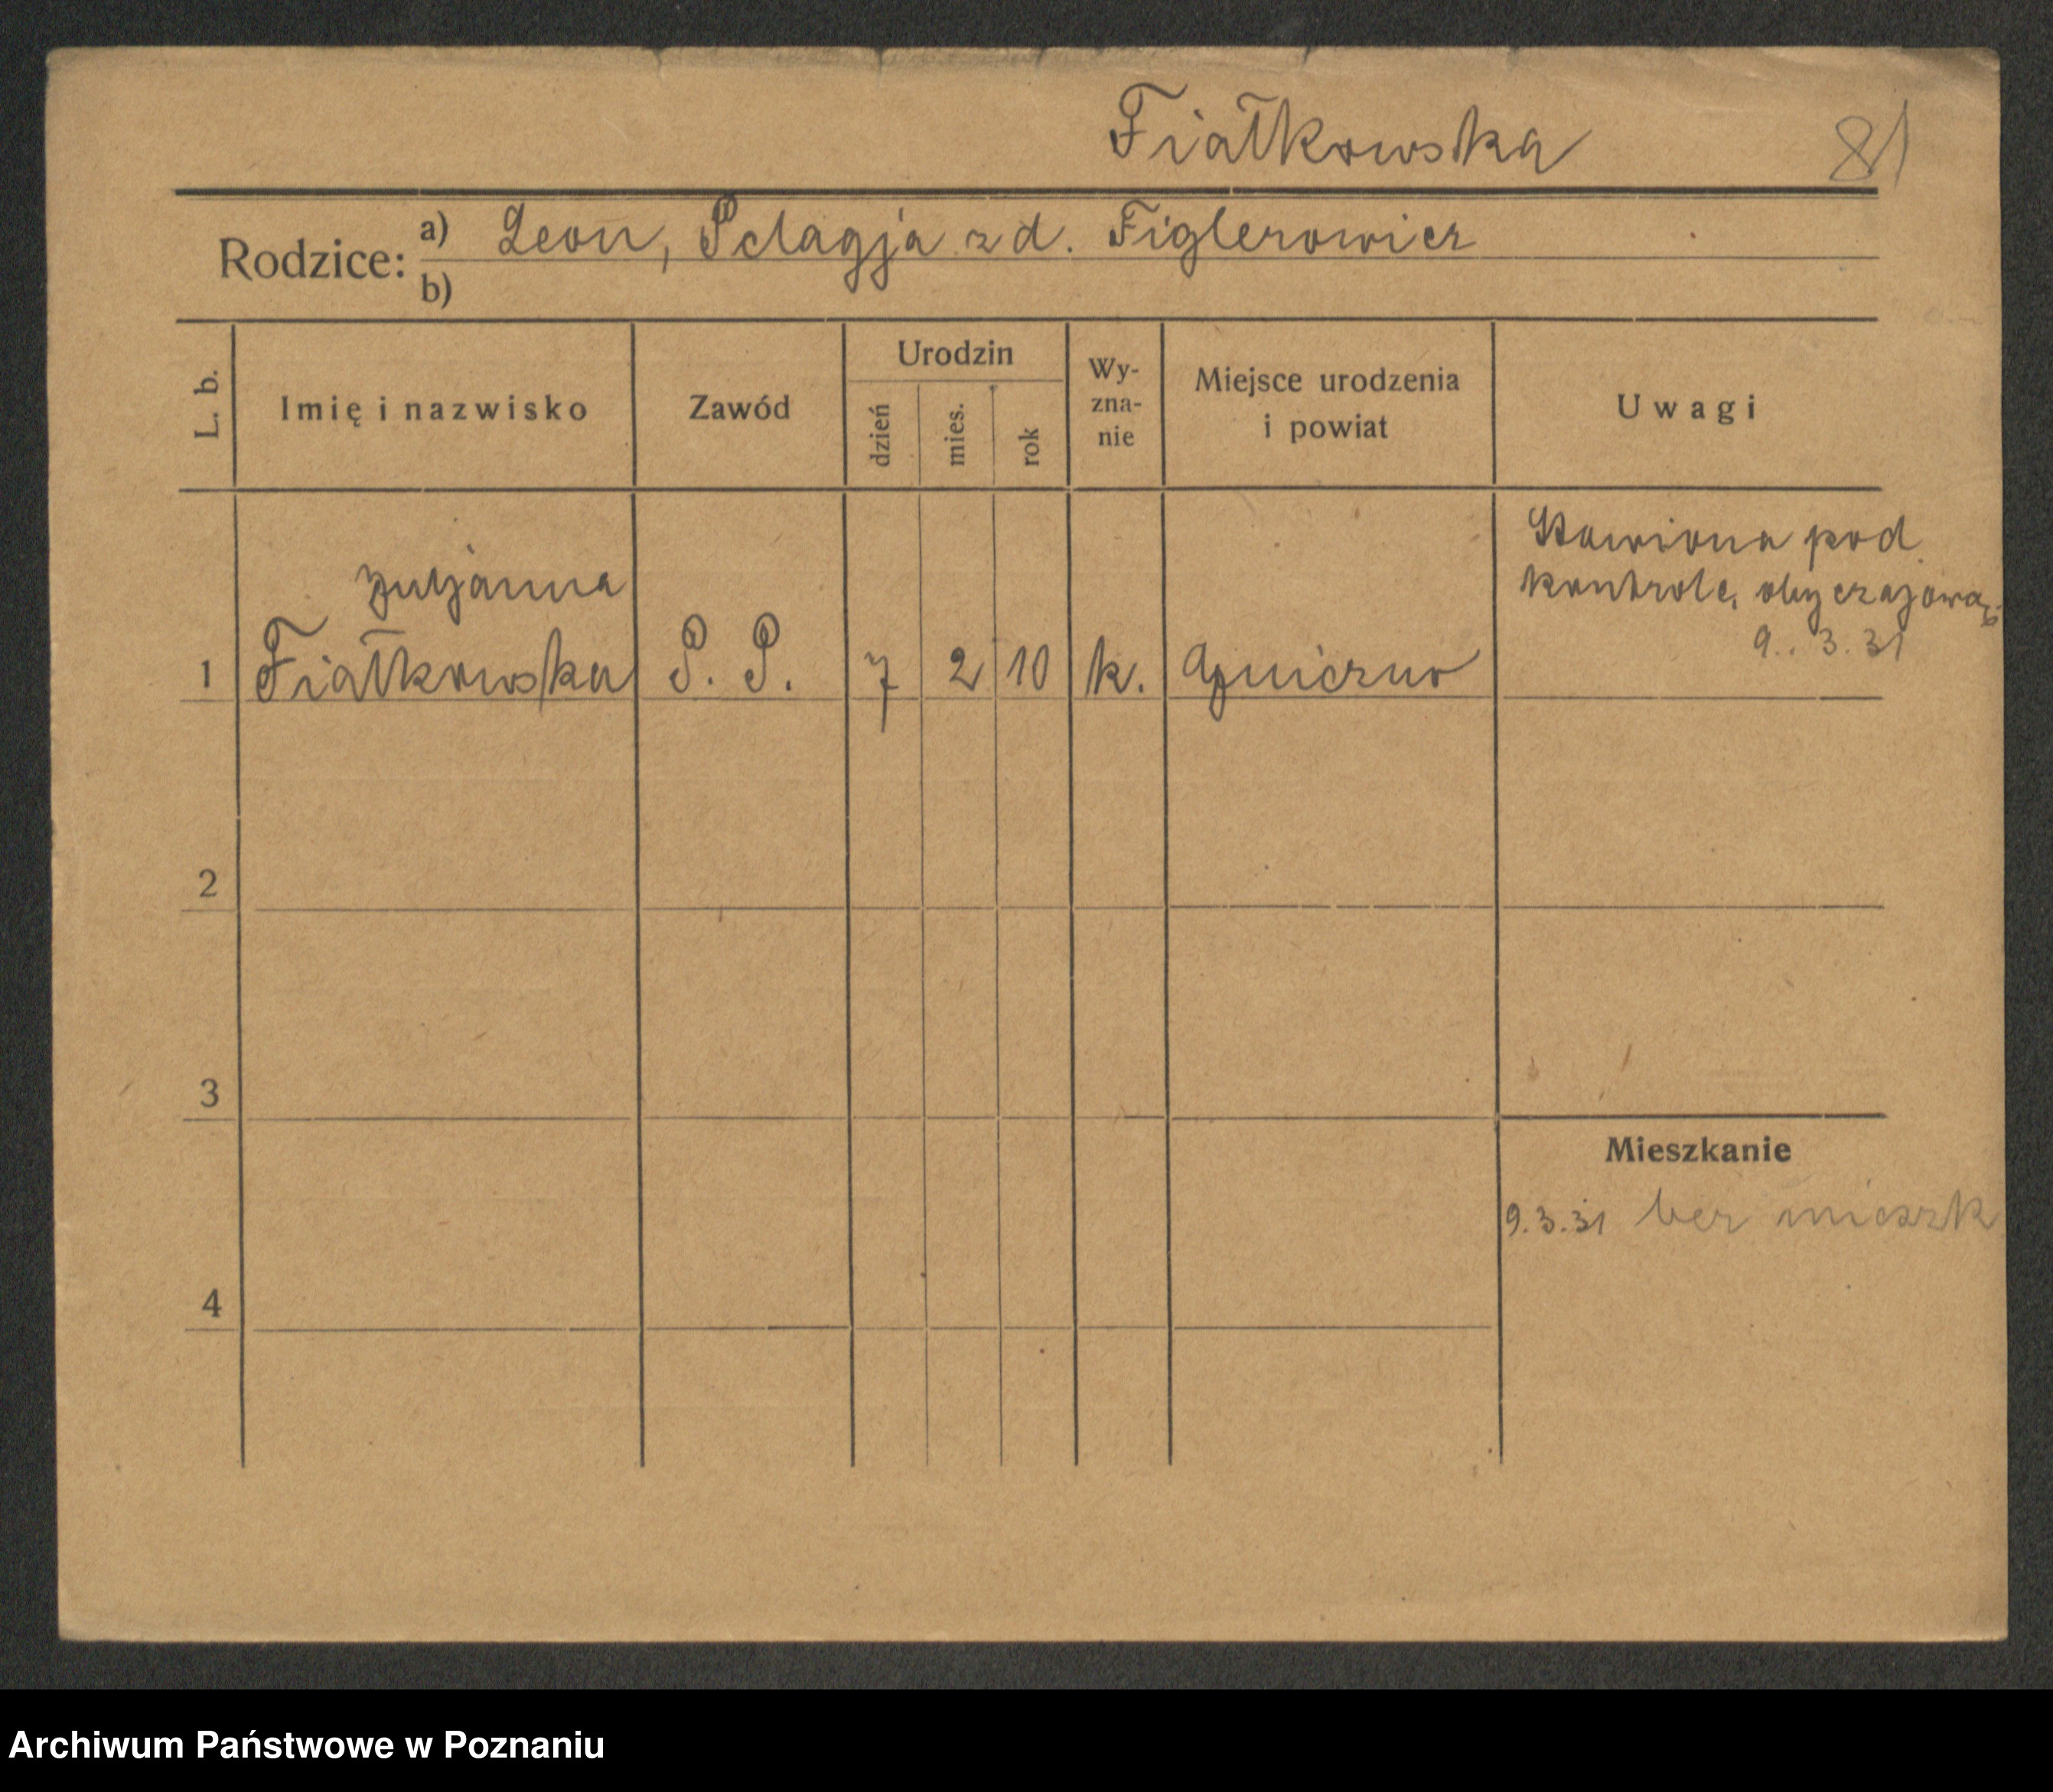 Fiałkowska 81
Rodzice: a) Leon, Pelagja z d. Figlerowicz
b)
L. b. Imię i nazwisko Zawód Urodzin dzień mies. rok Wyznanie Miejsce urodzenia i powiat Uwagi
Stawiona pod
kontrolę obyczajową
9.3.31
1 Fiałkowska P. P. 7 2 10 k. Gniezno
2
3
Mieszkanie
9.3.31 bez mieszk
4
Archiwum Państwowe w Poznaniu